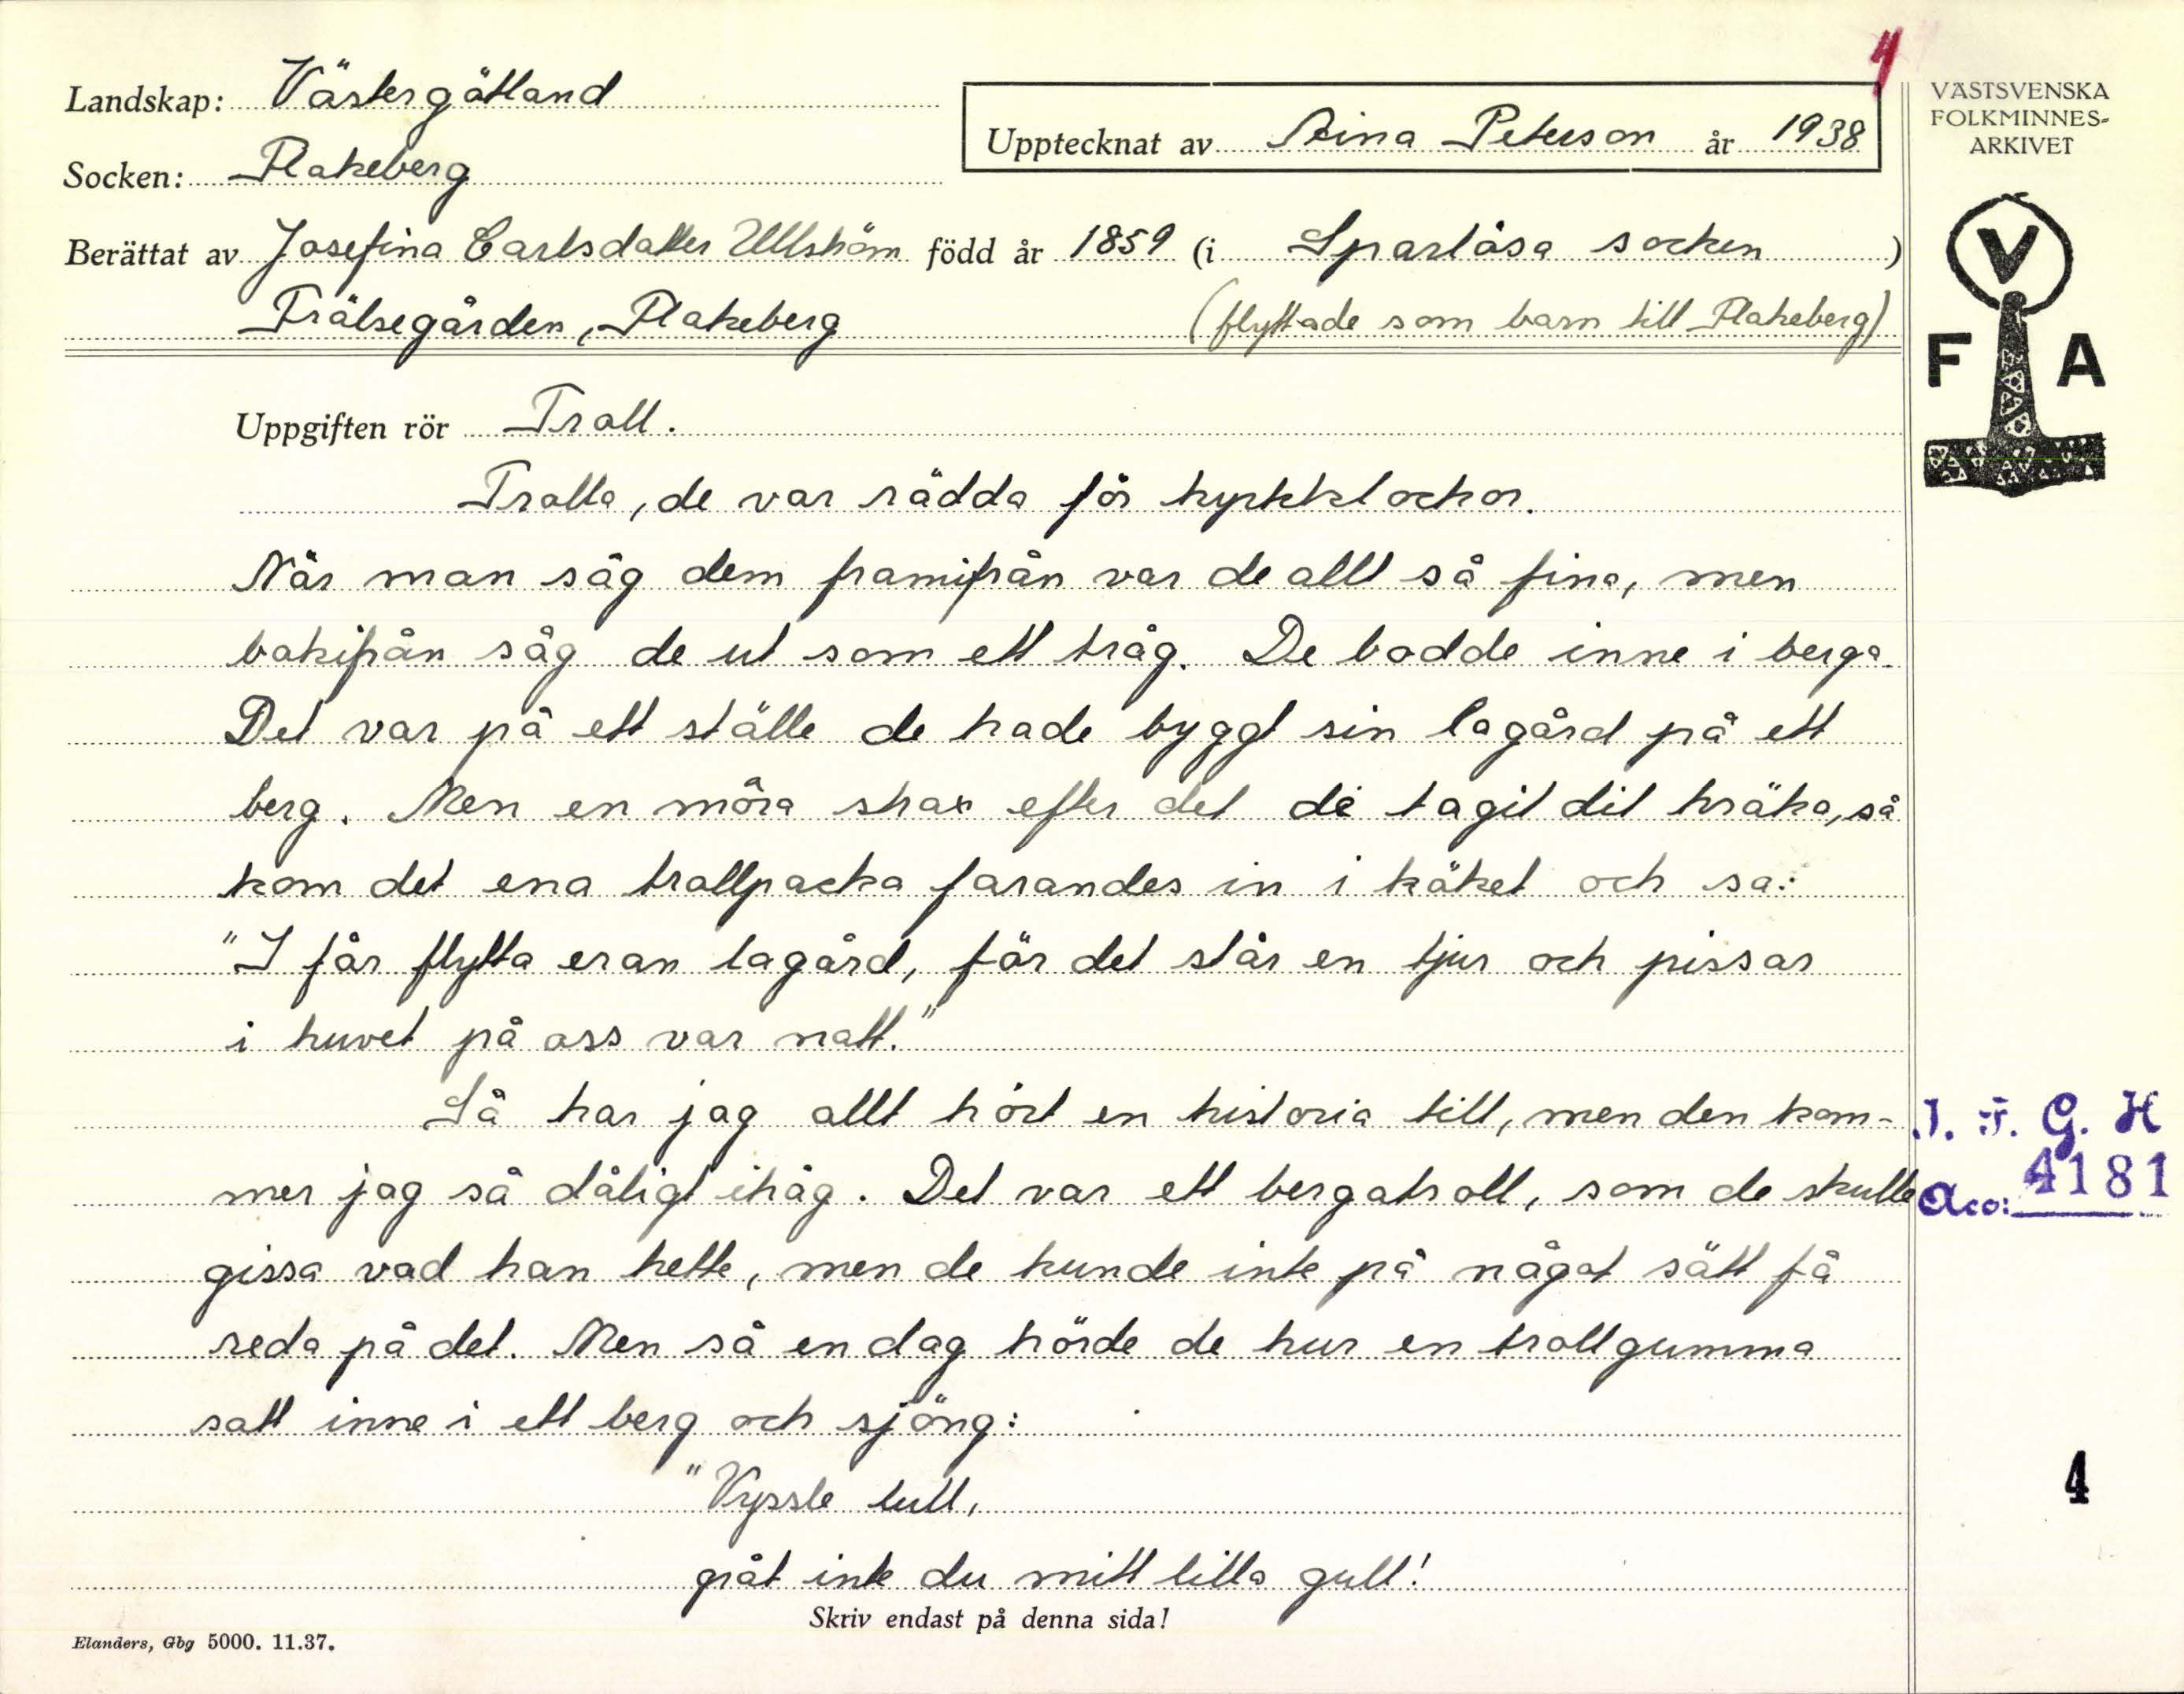 4
Landskap: Västergötland
Socken: Flakeberg
Upptecknat av Stina Peterson år 1938
Berättat av Josefina Carlsdatter Ullström född år 1859 (i Sparlösa socken)
Frälsegården, Flakeberg (flyttade som barn till Flakeberg)
Uppgiften rör Troll.
Trolla, de var rädda för kyrkklockor.
När man såg dem framifrån var de allt så fina, men
bakifrån såg de ut som ett tråg. De bodde inne i berga.
Det var på ett ställe de hade byggt sin lagård på ett
berg. Men en möra strax efter det de tagit dit kräka, så
kom det ena trollpacka farandes in i köket och sa:
"I får flytta eran lagård, för det står en tjur och pissar
i huvet på oss var natt."
Så har jag allt hört en historia till, men den kom-
mer jag så dåligt ihåg. Det var ett bergatroll, som de skulle
gissa vad han hette, men de kunde inte på något sätt få
reda på det. Men så en dag hörde de hur en trollgumma
satt inne i ett berg och sjöng:
"Vyssle lull,
gråt inte du mitt lilla gull!
Skriv endast på denna sida!
Elanders, Gbg 5000. 11.37.
VÄSTSVENSKA
FOLKMINNES-
ARKIVET
V
F A
I. F. G. H
Acc: 4181
4